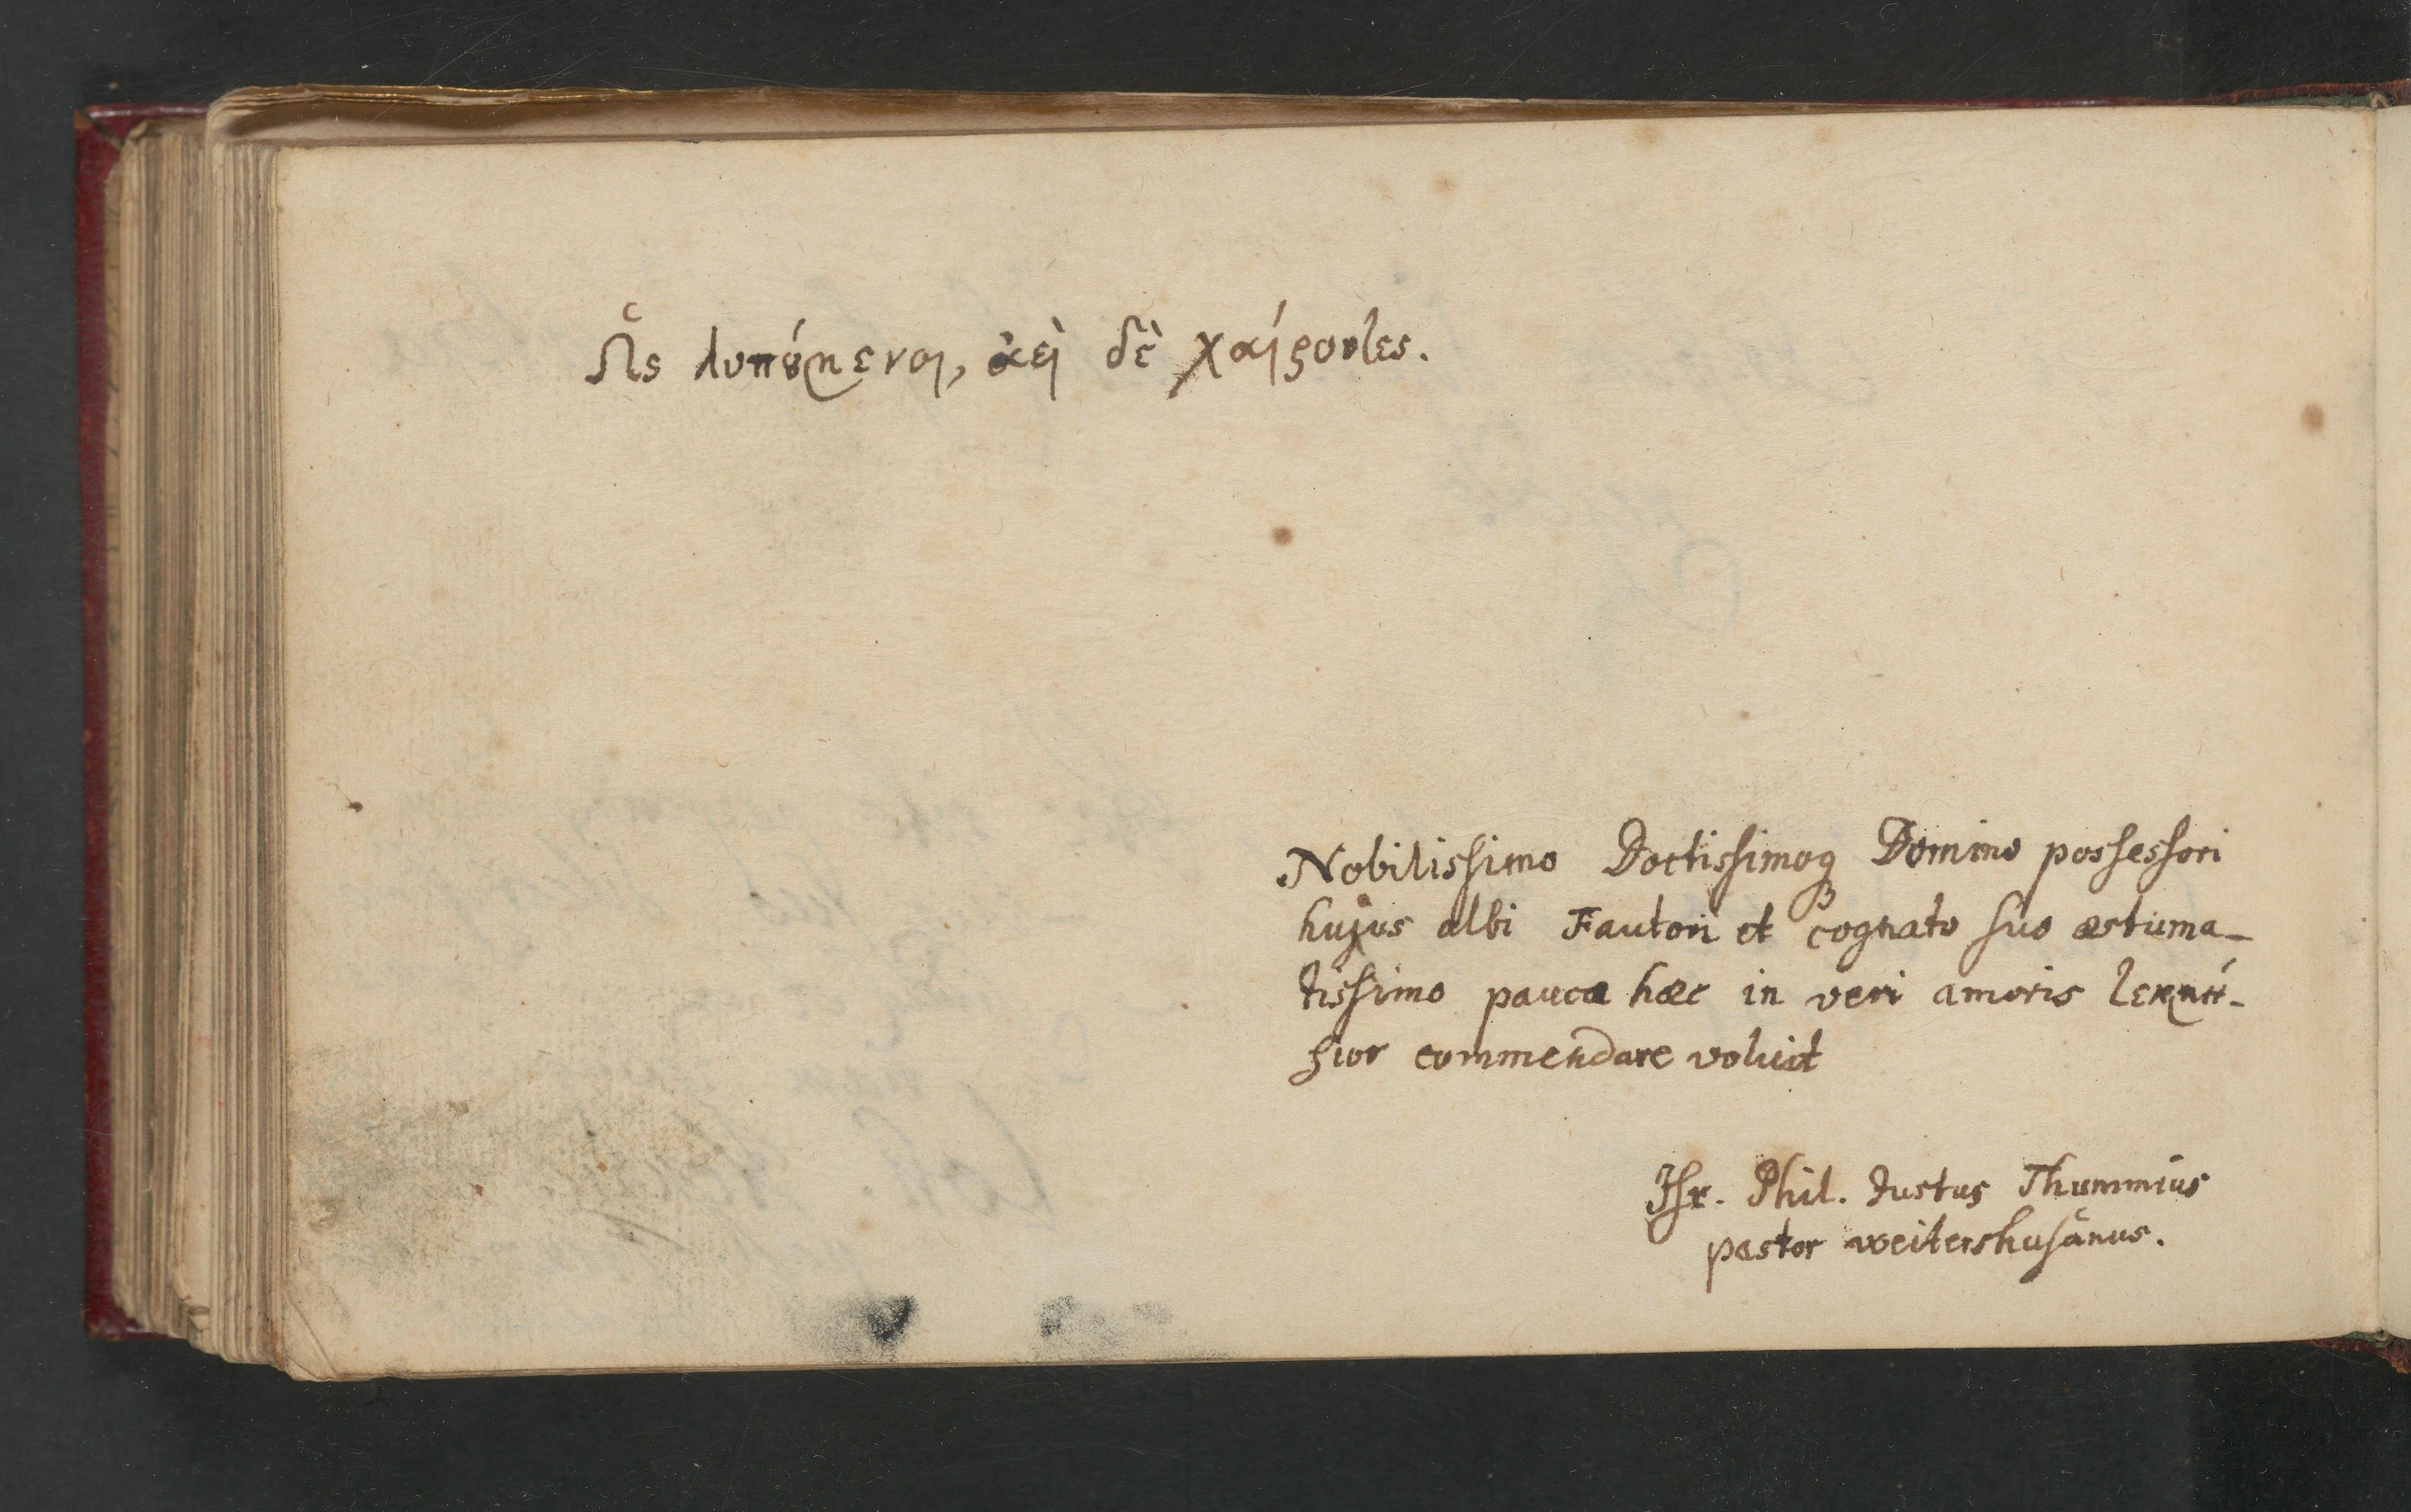 Ὡς λυπȣ́μενοι, ἀεὶ δὲ χαίροντες.
Nobilissimo Doctissimoq̢ Domino possessori
hujus albi Fautori et cognato suo æstuma-
tissimo pauca hæc in veri amoris τεκμή-
ριον commendare voluit
Phil. Justus Thummius
pastor weitershusânus.